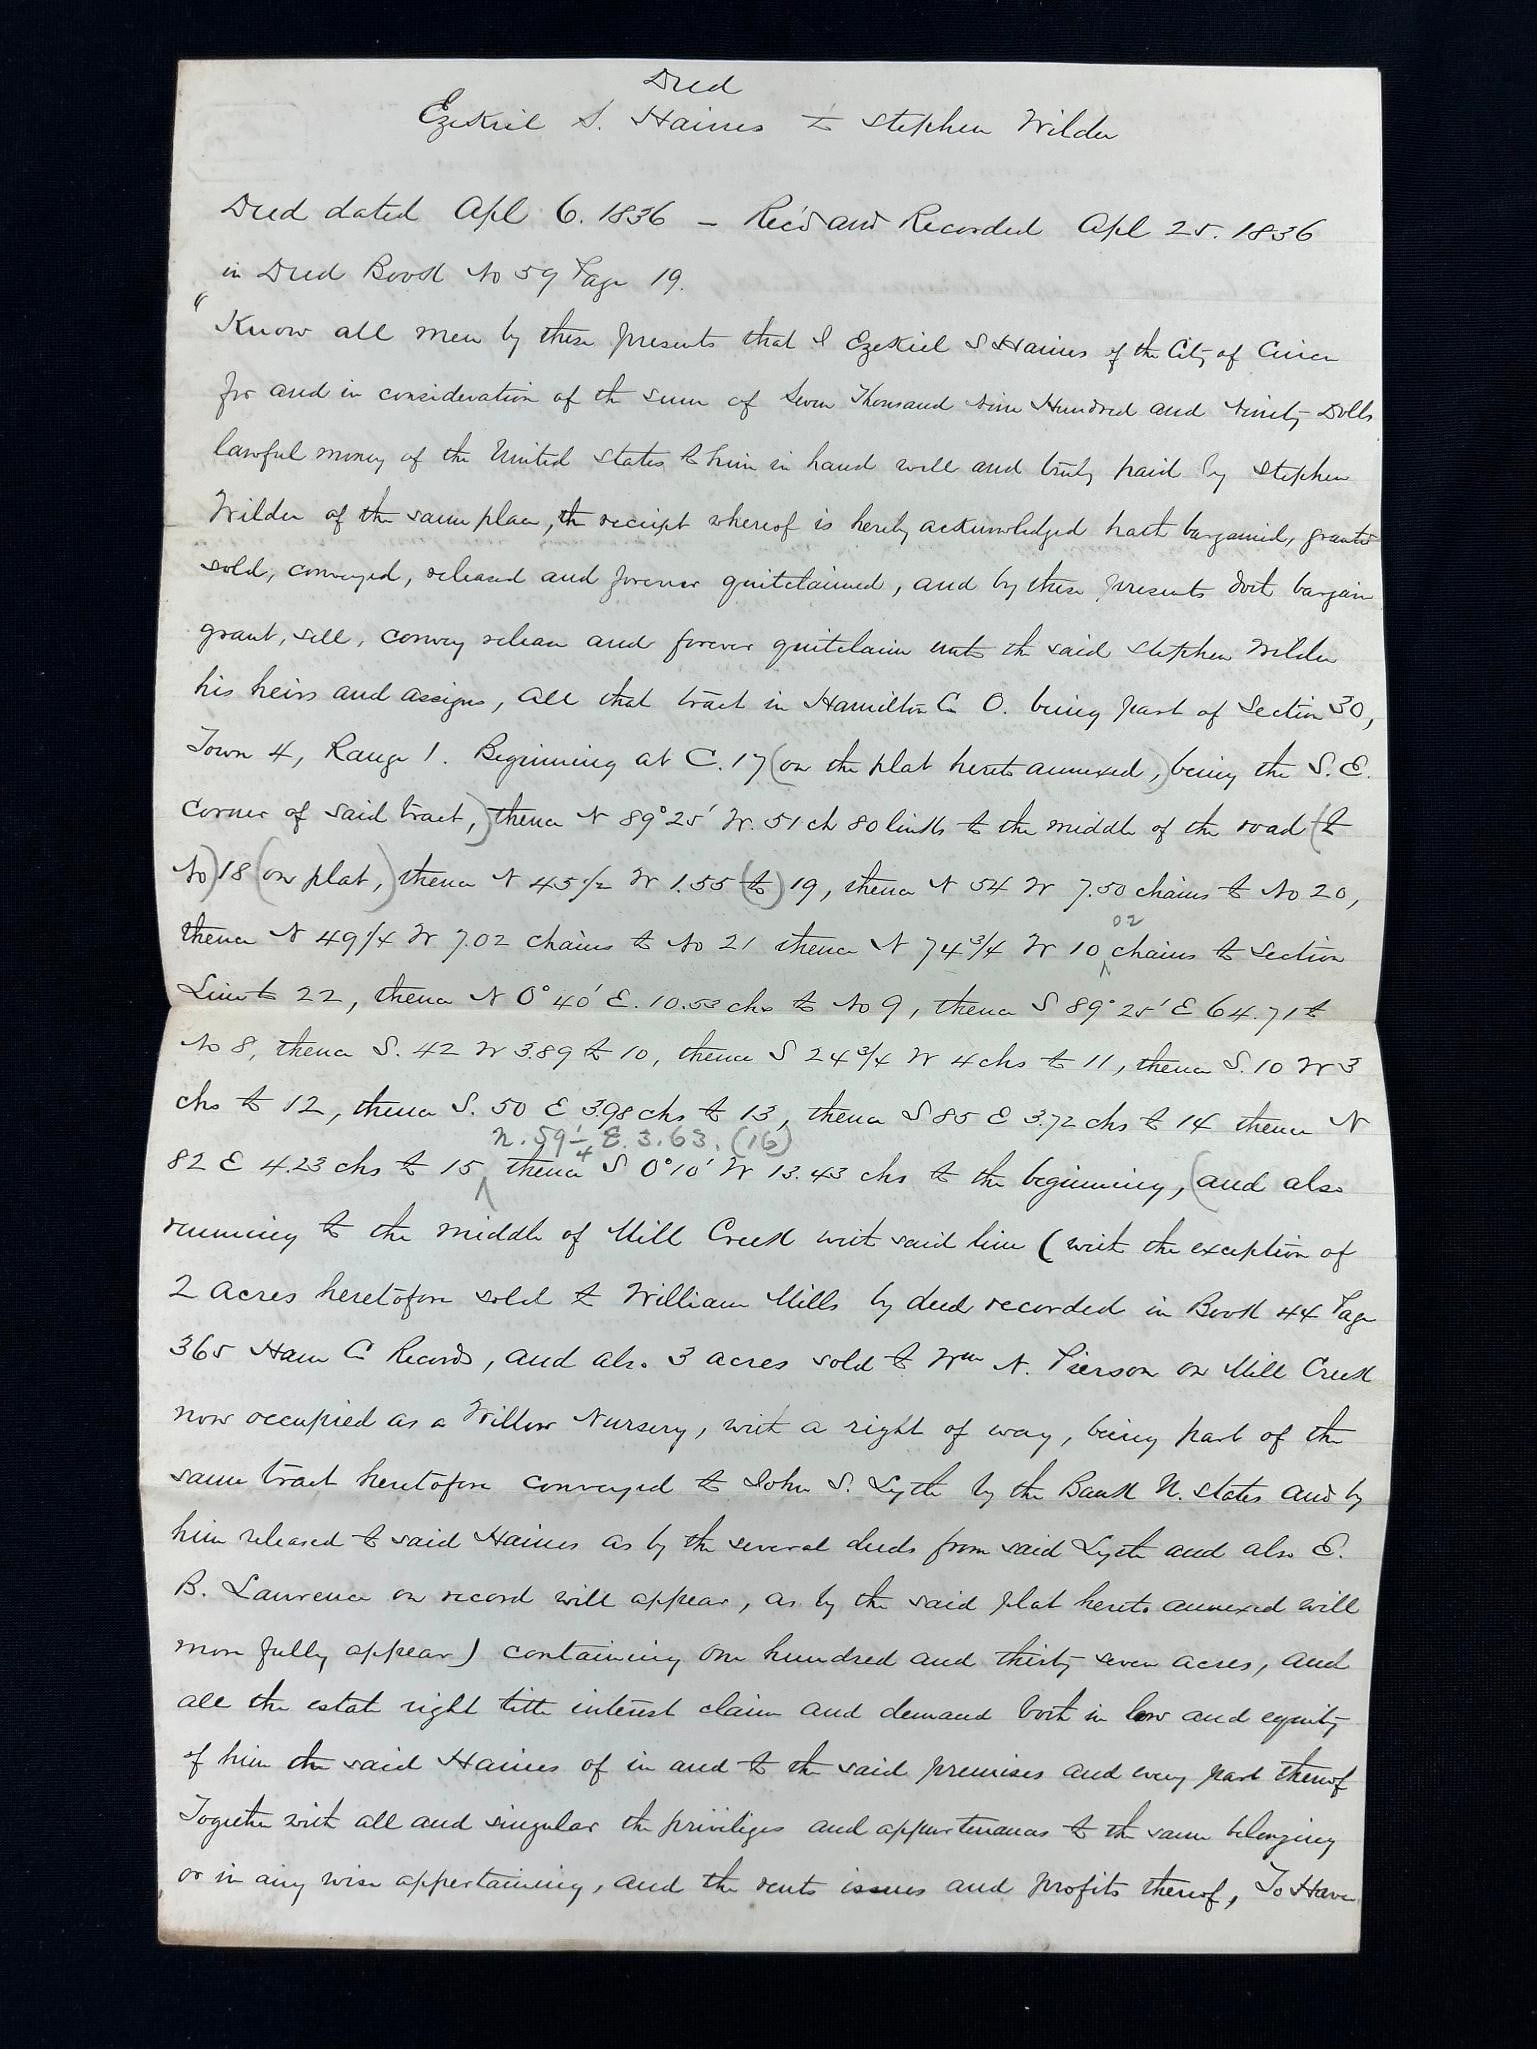 Deed
Ezekiel S. Haines to Stephen Wilder
Deed dated Apl 6. 1836 – Rec'd and Recorded Apl 25. 1836
in Deed Book No 59 Page 19.
"Know all men by these presents that I Ezekiel S Haines of the City of Cinci
for and in consideration of the sum of Seven Thousand Nine Hundred and Ninety Dolls
lawful money of the United States to him in hand well and truly paid by Stephen
Wilder of the same place, the receipt whereof is hereby acknowledged hath bargained, granted
sold, conveyed, released and forever quitclaimed, and by these presents doth bargain
grant, sell, convey release and forever quitclaim unto the said Stephen Wilder
his heirs and assigns, All that tract in Hamilton Co O. being part of Section 30,
Town 4, Range 1. Beginning at C. 17 (on the plat hereto annexed,) being the S. E.
corner of said tract,) thence N 89° 25' W. 51 ch 80 links to the middle of the road (to
No) 18 (on plat,) thence N 45 1/2 W 1.55 (to) 19, thence N 54 W 7.50 chains to No 20,
thence N 49 1/4 W 7.02 chains to No 21 thence N 74 3/4 W 10 02 chains to Section
Line to 22, thence N 0° 40' E. 10.53 chs to No 9, thence S 89° 25' E 64.71 to
No 8, thence S. 42 W 3.89 to 10, thence S 24 3/4 W 4 chs to 11, thence S. 10 W 3
chs to 12, thence S. 50 E 3.98 chs to 13, thence S 85 E 3.72 chs to 14 thence N
n. 59 1/4 E. 3.63. (16)
82 E 4.23 chs to 15 thence S 0° 10' W 13.43 chs to the beginning, (and also
running to the middle of Mill Creek with said line (with the exception of
2 Acres heretofore sold to William Mills by deed recorded in Book 44 Page
365 Ham Co Records, and also 3 acres sold to Wm N. Pierson on Mill Creek
now occupied as a Willow Nursery, with a right of way, being part of the
same tract heretofore conveyed to John S. Lytle by the Bank U. States and by
him released to said Haines as by the several deeds from said Lytle and also E.
B. Lawrence on record will appear, as by the said plat hereto annexed will
more fully appear) containing one hundred and thirty seven acres, and
all the estate right title interest claim and demand both in law and equity
of him the said Haines of in and to the said premises and every part thereof
Together with all and singular the priviliges and appurtenances to the same belonging
or in any wise appertaining, and the rents issues and profits thereof, To Have